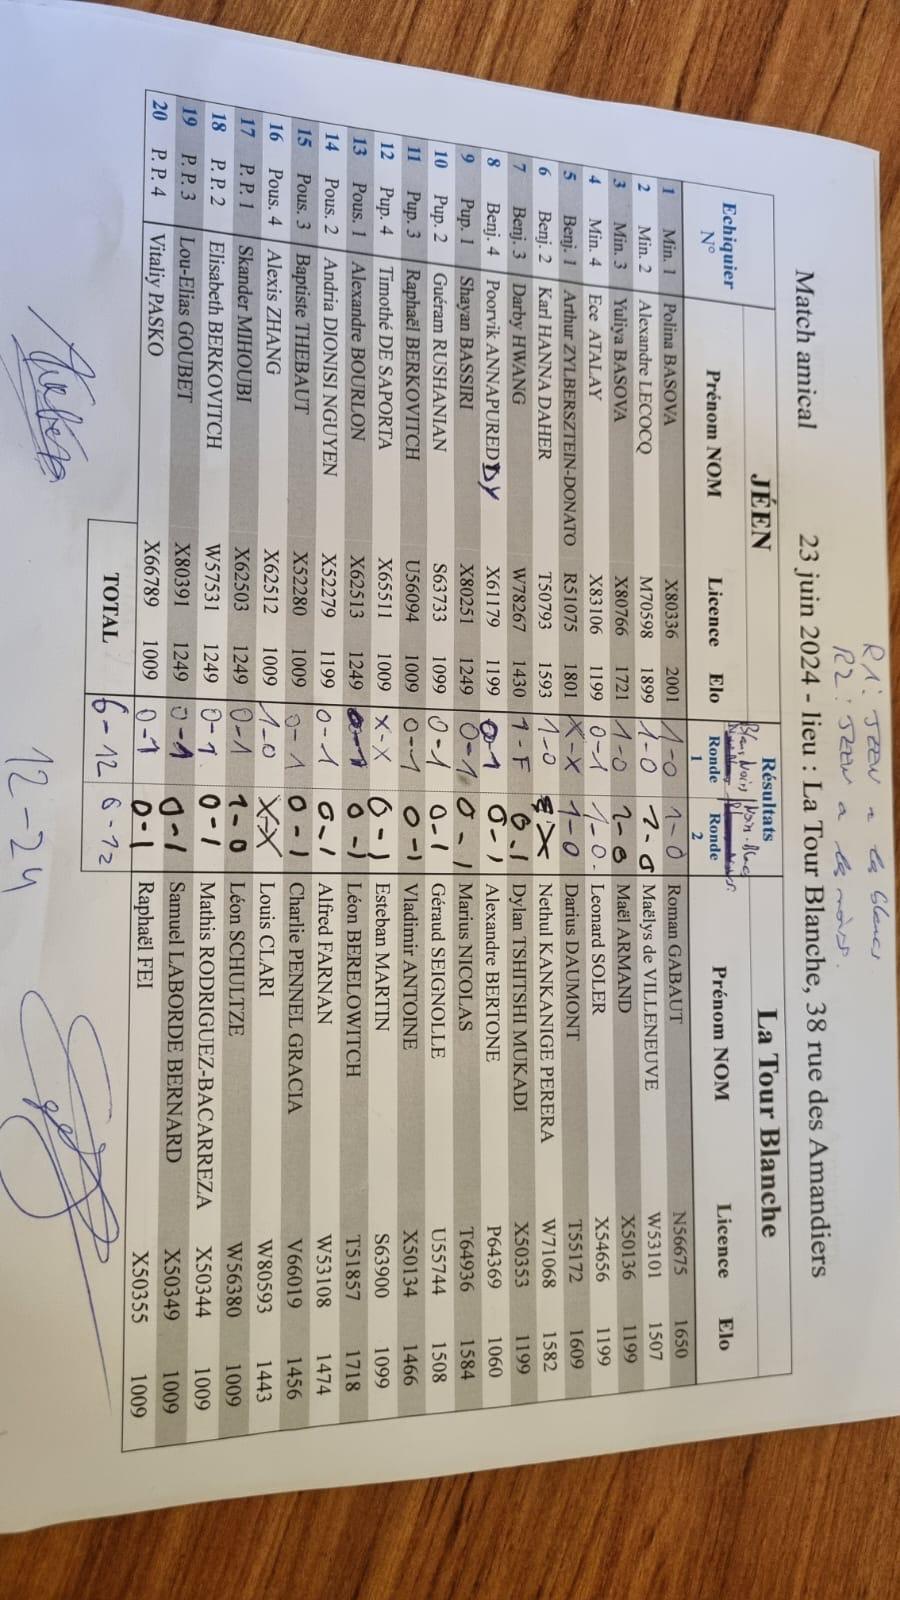 R1: JEEN a les blancs
R2: JEEN a les noirs.
Match amical 23 juin 2024 - lieu : La Tour Blanche, 38 rue des Amandiers
JÉEN Résultats La Tour Blanche
Blanc-Noir Noir-Blanc
Echiquier N° Prénom NOM Licence Elo Ronde 1 Ronde 2 Prénom NOM Licence Elo
1 Min. 1 Polina BASOVA X80336 2001 1-0 1-0 Roman GABAUT N56675 1650
2 Min. 2 Alexandre LECOCQ M70598 1899 1-0 1-0 Maëlys de VILLENEUVE W53101 1507
3 Min. 3 Yuliya BASOVA X80766 1721 1-0 1-0 Maël ARMAND X50136 1199
4 Min. 4 Ece ATALAY X83106 1199 0-1 1-0. Leonard SOLER X54656 1199
5 Benj. 1 Arthur ZYLBERSZTEIN-DONATO R51075 1801 X-X 1-0 Darius DAUMONT T55172 1609
6 Benj. 2 Karl HANNA DAHER T50793 1593 1-0 Nethul KANKANIGE PERERA W71068 1582
7 Benj. 3 Darby HWANG W78267 1430 1-F 0-1 Dylan TSHITSHI MUKADI X50353 1199
8 Benj. 4 Poorvik ANNAPUREDDY X61179 1199 0-1 0-1 Alexandre BERTONE P64369 1060
9 Pup. 1 Shayan BASSIRI X80251 1249 0-1 0-1 Marius NICOLAS T64936 1584
10 Pup. 2 Guéram RUSHANIAN S63733 1099 0-1 0-1 Géraud SEIGNOLLE U55744 1508
11 Pup. 3 Raphaël BERKOVITCH U56094 1009 0-1 0-1 Vladimir ANTOINE X50134 1466
12 Pup. 4 Timothé DE SAPORTA X65511 1009 X-X 0-1 Esteban MARTIN S63900 1099
13 Pous. 1 Alexandre BOURLON X62513 1249 0-1 0-1 Léon BERELOWITCH T51857 1718
14 Pous. 2 Andria DIONISI NGUYEN X52279 1199 0-1 0-1 Alfred FARNAN W53108 1474
15 Pous. 3 Baptiste THEBAUT X52280 1009 0-1 0-1 Charlie PENNEL GRACIA V66019 1456
16 Pous. 4 Alexis ZHANG X62512 1009 1-0 X-X Louis CLARI W80593 1443
17 P. P. 1 Skander MIHOUBI X62503 1249 0-1 1-0 Léon SCHULTZE W56380 1009
18 P. P. 2 Elisabeth BERKOVITCH W57531 1249 0-1. 0-1 Mathis RODRIGUEZ-BACARREZA X50344 1009
19 P. P. 3 Lou-Elias GOUBET X80391 1249 0-1 0-1 Samuel LABORDE BERNARD X50349 1009
20 P. P. 4 Vitaliy PASKO X66789 1009 0-1 0-1 Raphaël FEI X50355 1009
TOTAL 6-12 6-12
12-24